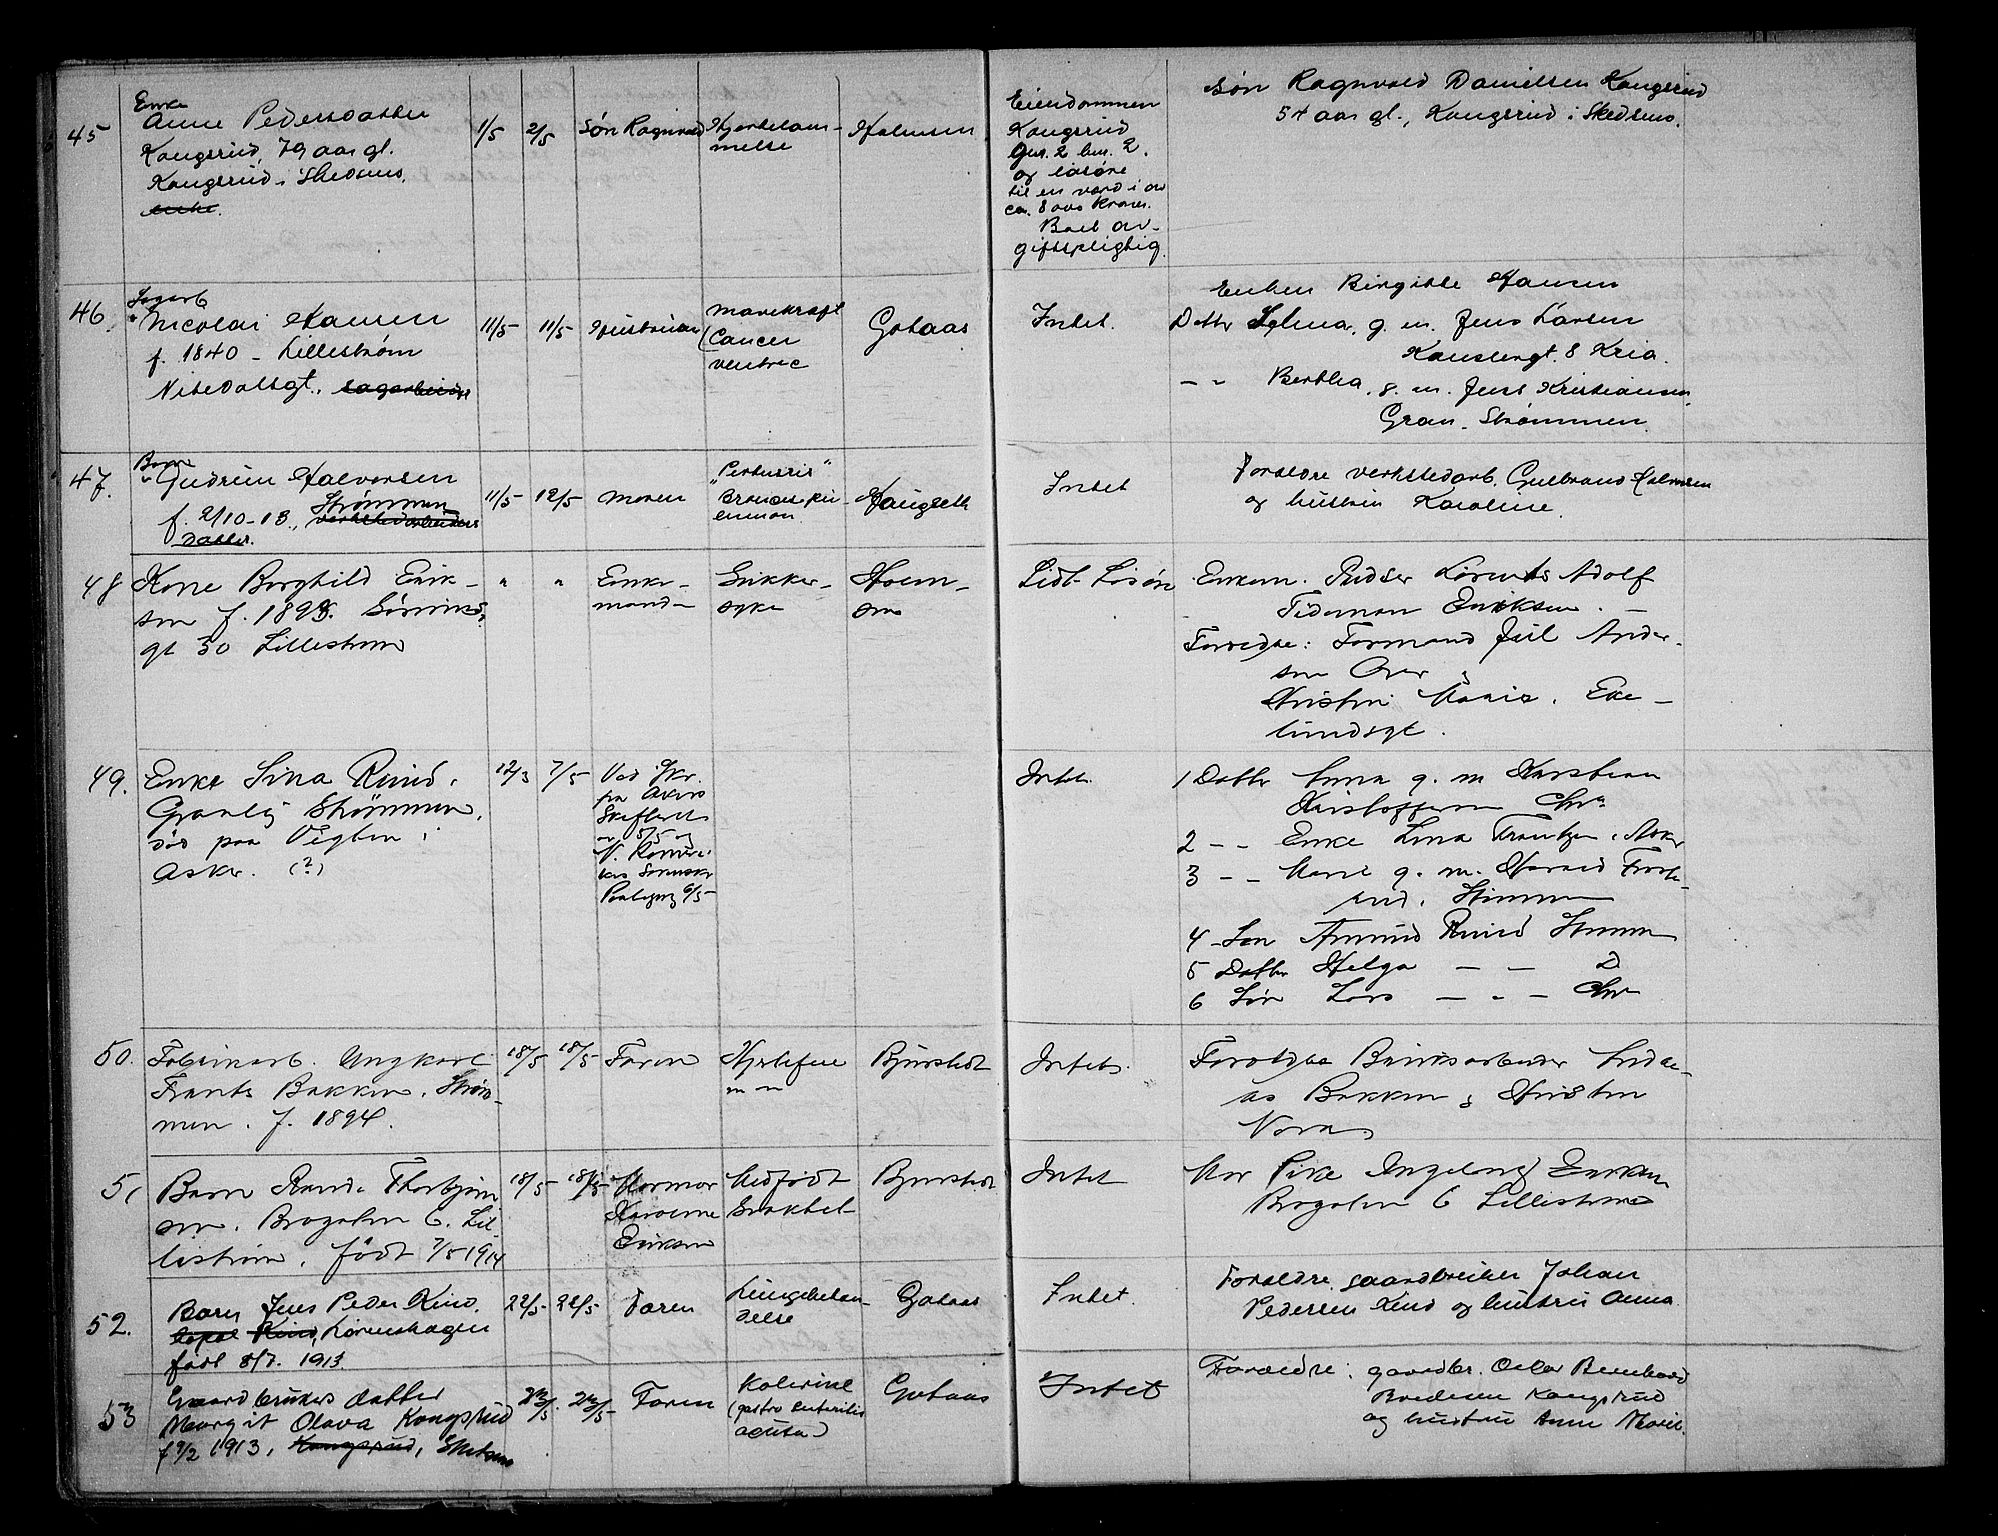 45
Enke
Anne Pedersdatter
Kongsrud, 79 aar gl.
Kongsrud i Skedsmo.
enke.
1/5
2/5
Søn Ragnvald
Hjertelam-
melse
Holmsen
Eiendommen
Kongsrud
Gnr. 2 bnr. 2.
og løsøre
til en værdi i av
ca. 8000 kroner.
Boet av-
giftspligtig.
Søn Ragnvald Danielsen Kongsrud
54 aar gl., Kongsrud i Skedsmo.
46.
Sagarb
Nicolai Hansen
f. 1840 - Lillestrøm
Nitedalsgt., sagarbeider
11/5
11/5
Hustruen
Marekraft
(Cancer
ventric
Gotaas
Intet.
Enken Birgitte Hansen
Datter Selma, g. m. Jens Larsen
Kanslergt. 8 Kria.
- " Bertha, g. m. Jens Kristiansen,
Gran, Strømmen.
47.
Barn
Gudrun Halvorsen
Strømmen
f. 2/10-13, verkstedarbeiders
datter.
11/5
12/5
Moren
"Pertussis"
Haugseth
Intet
Foreldre verkstedarb. Gulbrand
og hustru Karoline.
48
Kone Borghild Erik-
sen f. 1893. Sørum's
gt 30 Lillestrøm
"
"
Enke-
mand
Sukker-
syke
Holm-
sen
Lidt Løsøre
Enkem. Lorents Adolf
Tideman Eriksen. -
Foreldre: Formand Juel Ander-
sen
Marie.
49.
Enke Lina Ruud,
Granli Strømmen,
død paa Veglen i
Asker. (?)
12/3
7/5
Ved skr.
fra Akers
Skifterett
av 5/5 og
6/5
Intet.
1 Datter Anna g. m. Karsten
Kristoffersen Chra
2 - - Enke Lina Frantzen, Asker
3 - - Marie g. m. Harald
Strømmen
4 Søn Amund Ruud Strømmen
5 Datter Helga - - D
6 Søn Lars - " - Chra
50.
Fabrikarb. Ungkarl
Frants Bakken, Strøm-
men. f. 1894.
18/5
18/5
Faren
Hjertefeil
Bjørstedt
Intet.
Foreldre Bruksarbeider Andre-
as Bakken og Hustru
Nora
51
Barn Thorbjørn-
sen, Brogaten 6, Lil-
lestrøm, født 7/5 1914
18/5
18/5
Mormor
Karoline
Eriksen
Medfødt
Svakhet
Bjørstedt
Intet
Mor Pike Ingeborg Eriksen
Brogaten 6 Lillestrøm
52.
Barn Jens Peder Rind,
Rind, Lørenskogen
født 8/7. 1913.
22/5
22/5
Faren
Lungebetæn-
delse
Gotaas
Intet.
Foreldre, gaardbruker Johan
Pedersen Rind og hustru Anna.
53
Gaardbrukers datter
Margit Olava Kongsrud
f 9/2 1913, Kongsrud, Skedsmo
23/5
23/5
Faren
Kolerine
(gastro enteritis
acuta)
Gotaas
Intet
Foreldre: gaardbr. Oskar Bernhard
Kongsrud
og hustru Anne Marie.